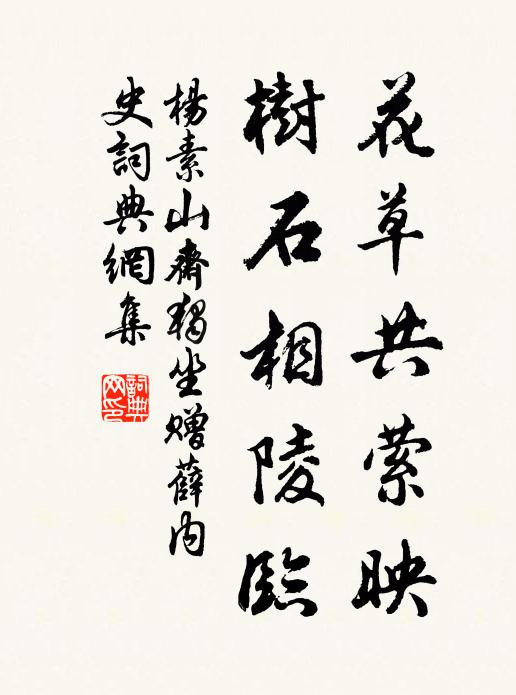 花草共萦映
樹石相陵臨
楊素山齋獨坐赠薛内
史詞典網集
詞典網印